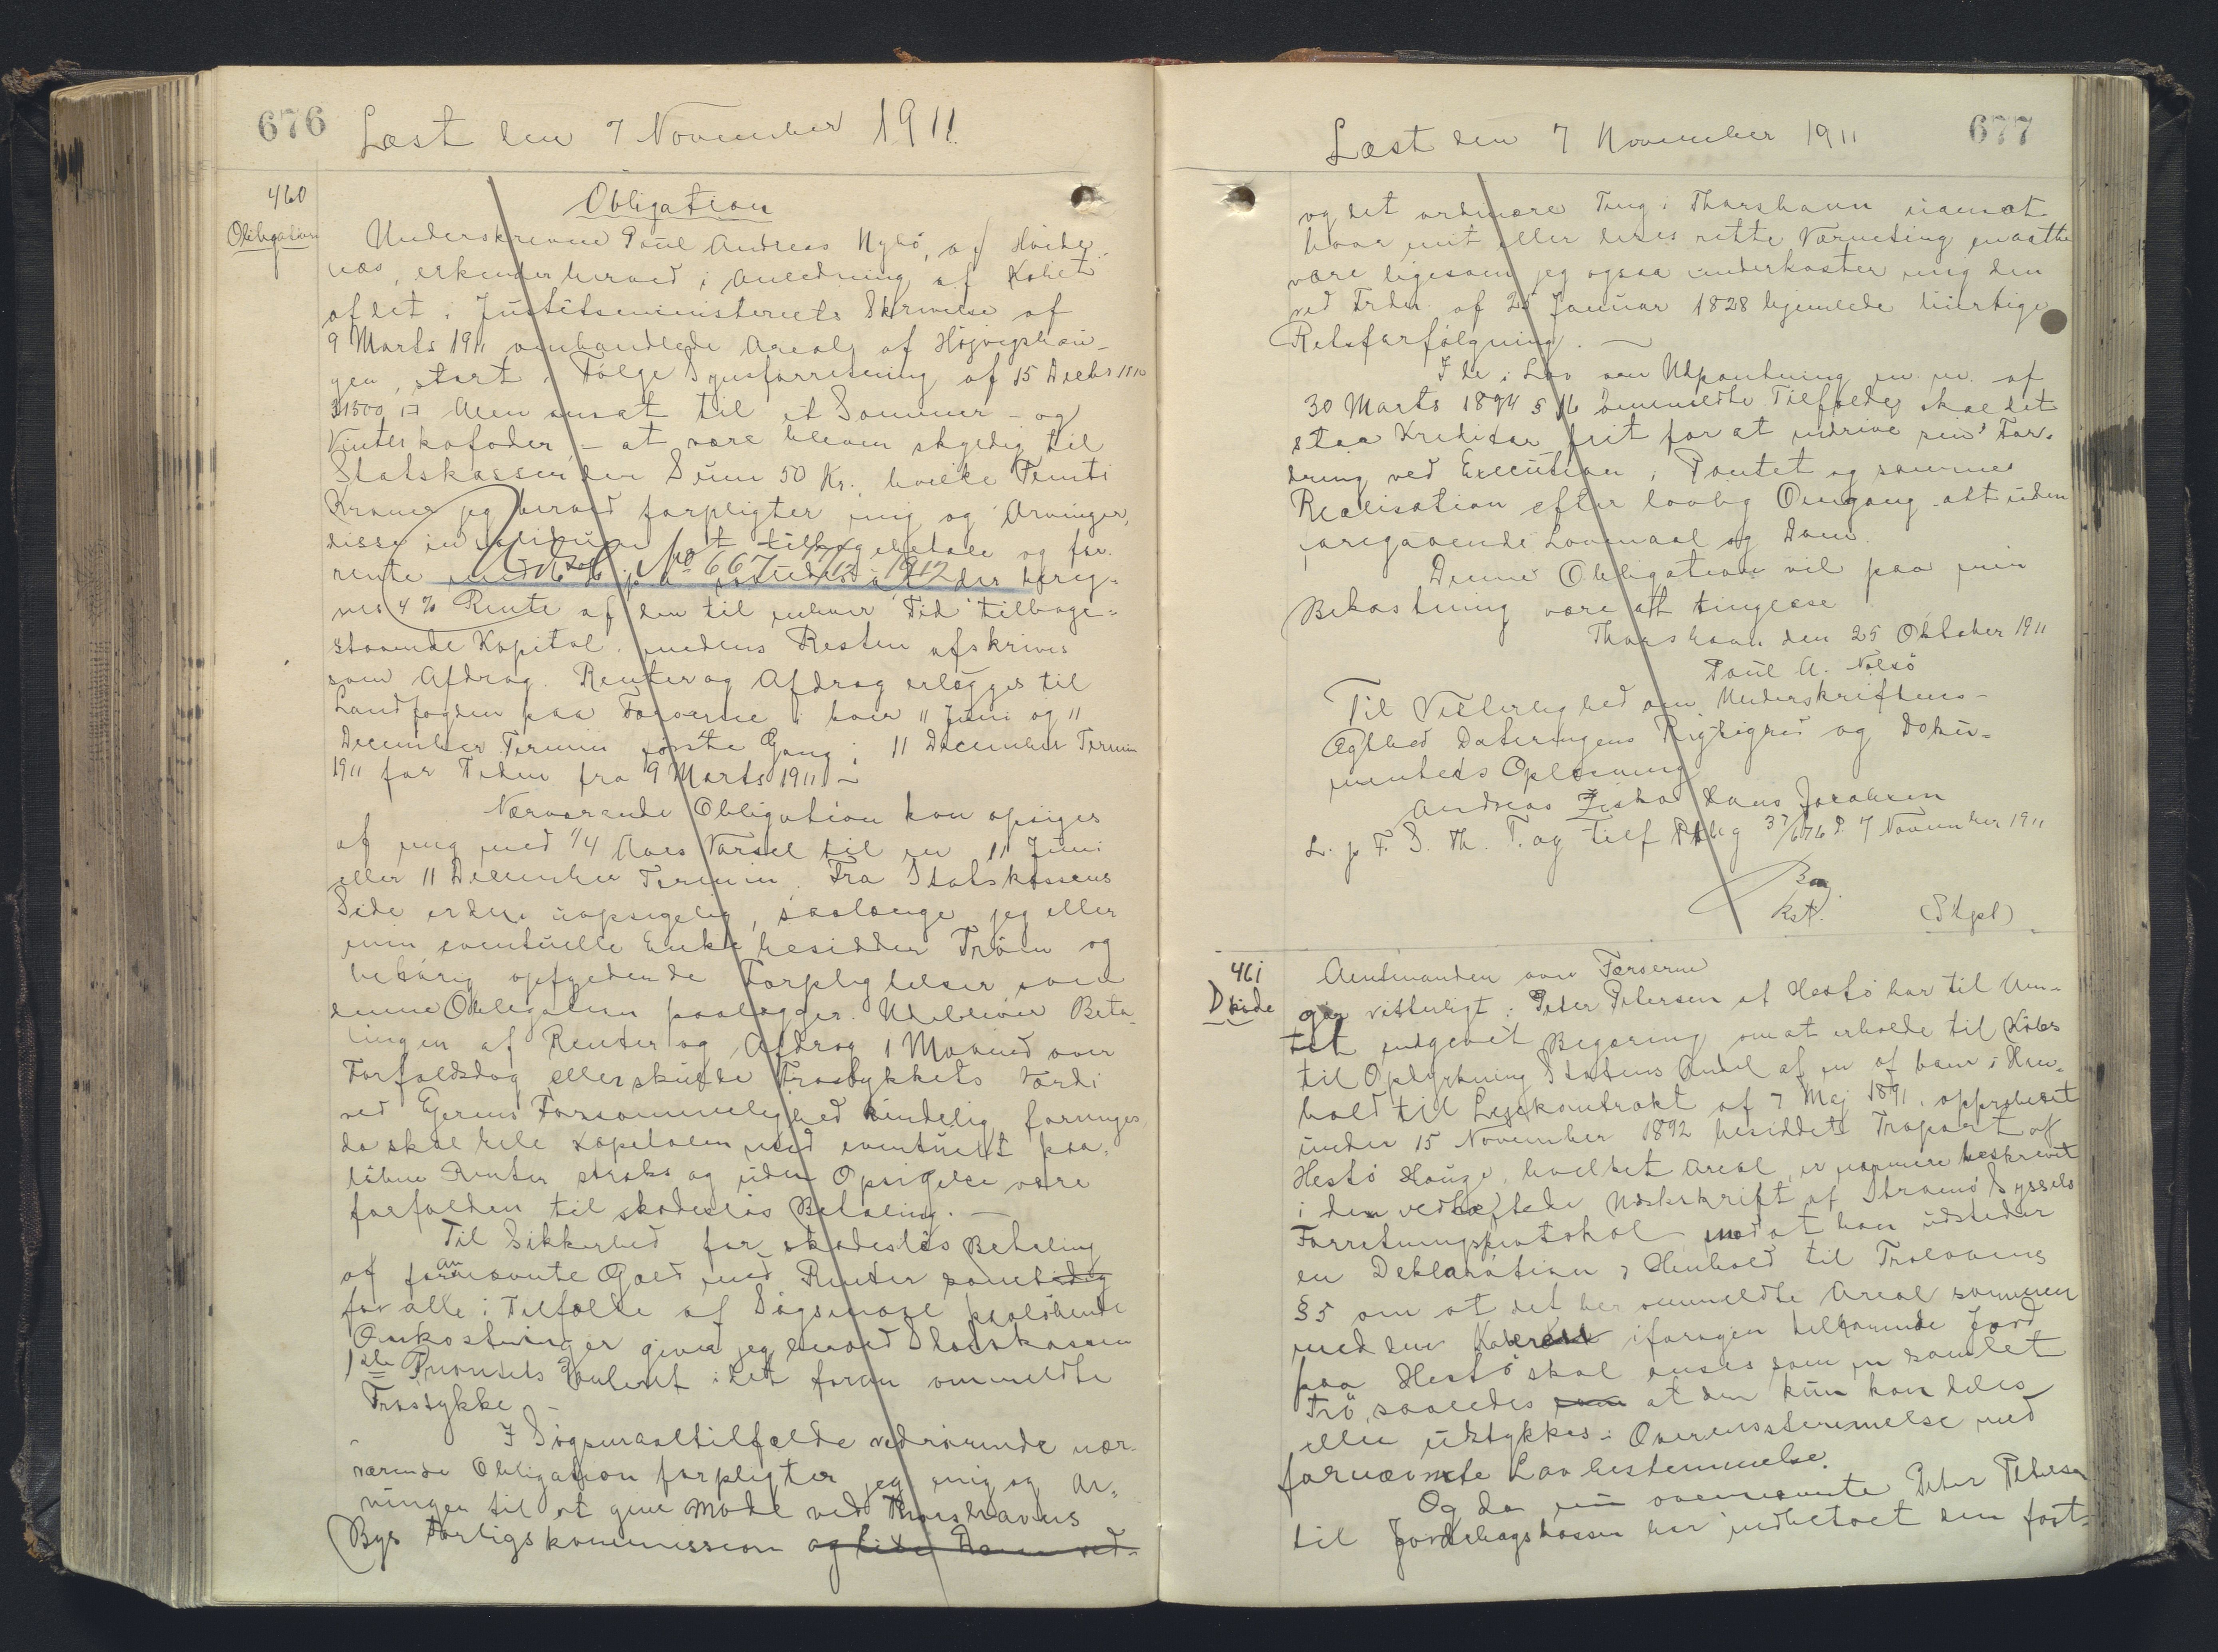 676
Læst den 7 November 1911.
460
Obligation
Obligation
Underskrevne Poul Andreas Nolsö, af Hvide
næs, erkender herved i Anledning af Købet
af det i Justitsministeriets Skrivelse af
9 Marts 1911 omhandlede Areal af Højvigshau-
gen, stort i Følge Synsforretning af 15 Decbr 1810
31500 □ Alen ansat til et Sommer- og
Vinterkofoder - at være bleven skyldig til
Statskassen den Sum 50 Kr., hvilke Femti
Kroner jeg herved forpligter mig og Arvinger,
disse in solidum at tilbagebetale og for-
rente med 6 % p.a. saaledes at der bereg-
Udsl. No 667 12/11 1912
nes 4 % Rente af den til enhver Tid tilbage-
staaende Kapital, medens Resten afskrives
som Afdrag. Renter og Afdrag erlægges til
Landfogden paa Færøerne i hver 11 Juni og 11
December Termin første Gang i 11 December Termin
1911 for Tiden fra 9 Marts 1911 -
Nærværende Obligation kan opsiges
af mig med 1/4 Aars Varsel til en 11 Juni
eller 11 December Termin. Fra Statskassens
Side er den uopsigelig, saalænge jeg eller
min eventuelle Enke besidder Tröen og
behørig opfylder de Forpligtelser som
denne Obligation paalægger. Udebliver Beta-
lingen af Renter og Afdrag 1 Maaned over
Forfaldsdag eller skulde Trøstykkets Værdi
ved Ejerens Forsømmelighed kendelig forringes,
da skal hele Kapitalen med eventuelt paa-
løbne Renter straks og uden Opsigelse være
forfalden til skadesløs Betaling. -
Til Sikkerhed for skadesløs Betaling
af forannævnte Gæld med Renter samt
for alle i Tilfælde af Søgsmaal paaløbende
Omkostninger giver jeg herved Statskassen
1ste Prioritets Panteret i det foran ommeldte
Trøstykke -
I Søgsmaaltilfælde vedrørende nær-
værende Obligation forpligter jeg mig og Ar-
vinger til at give Møde ved Thorshavns
Bys Forligskommission og lide Dom ved-
677
Læst den 7 November 1911
og det ordinære Ting i Thorshavn uanset
hvor mit eller deres rette Værneting maatte
være ligesom jeg ogsaa underkaster mig den
ved Frdn. af 25 Januar 1828 hjemlede hurtige
Retsforfølgning. -
I de i Lov om Udpantning m. m. af
30 Marts 1894 § 16 ommeldte Tilfælde skal det
staa Kreditor frit for at inddrive sin For-
dring ved Execution i Pantet og sammes
Realisation efter lovlig Omgang - alt uden
foregaaende Lovmaal og Dom.
Denne Obligation vil paa min
Bekostning være at tinglæse
Thorshavn den 25 Oktober 1911
Poul A. Nolsö
Til Vitterlighed om Underskriftens
Ægthed Dateringens Rigtighed og Doku-
mentets Oplæsning
Andreas Ziska Hans Jacobsen
L. p F. S. Th. T. og Tilf Pkbg 37/676 d. 7 November 1911
Kst.
(Stpl)
461
Skøde
Amtmanden over Færøerne
gør vitterligt: Peder Petersen af Hestö har til Am-
tet indgivet Begæring om at erholde til Købs
til Opdyrkning Statens Andel af en af ham i Hen-
hold til Lejekontrakt af 7 Maj 1891, approberet
under 15 November 1892 besiddet Tropart af
Hestö Hauge, hvilket Areal er nærmere beskrevet
i den vedhæftede Udskrift af Strømø Syssels
Forretningsprotokol mod at han udsteder
en Deklaration i Henhold til Trolovens
§ 5 om at det her ommeldte Areal sammen
med den Køberen iforvejen tilhørende Jord
paa Hestö skal anses som en samlet
Trö, saaledes at den kun kan deles
eller udstykkes i Overensstemmelse med
fornævnte Lovbestemmelse.
Og da nu ovennævnte Peder Petersen
til Jordebogskassen har indbetalt den fast-